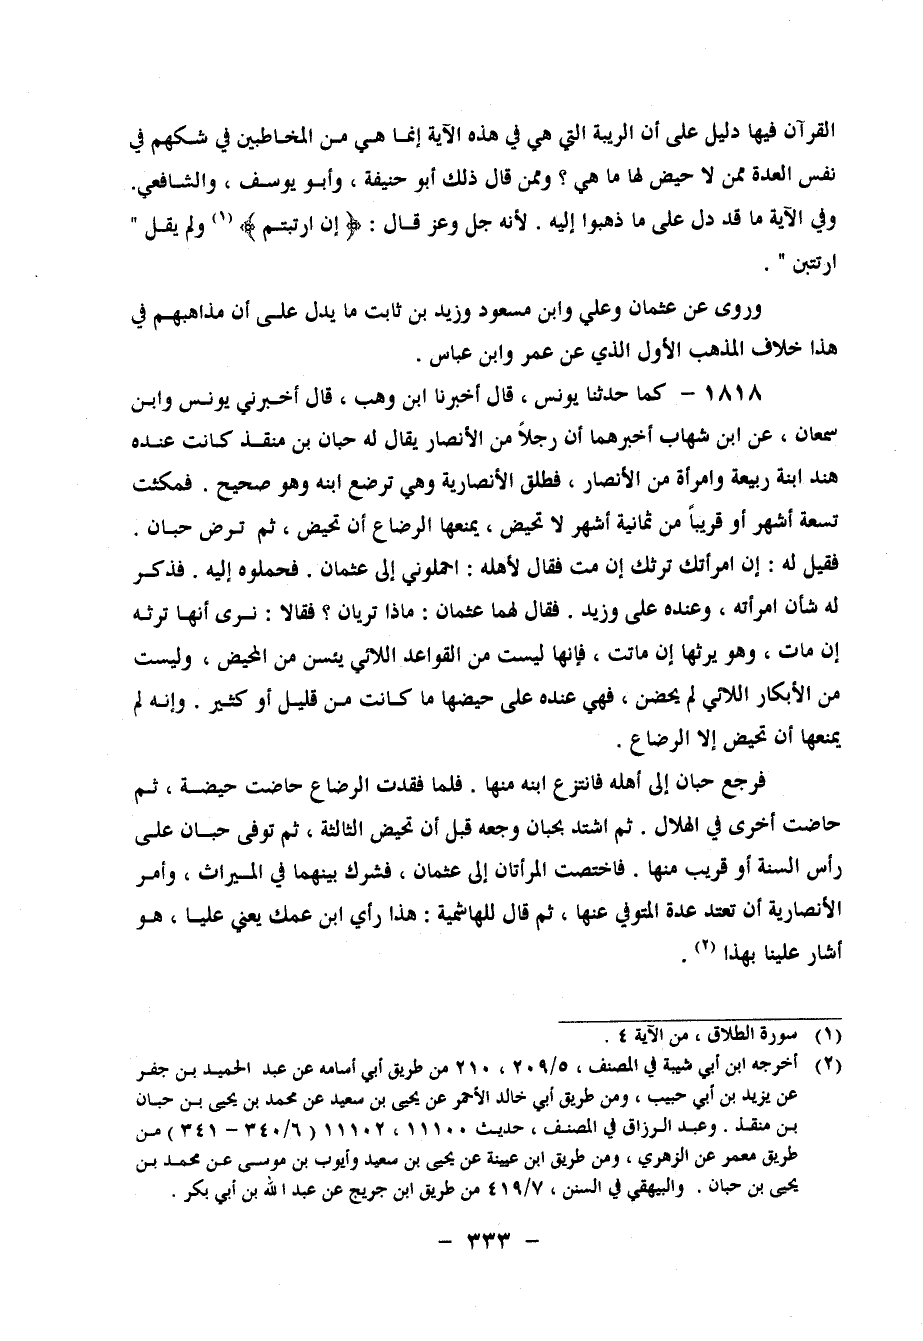 القرآن فيها دليل على أن الريبة التي هي في هذه الآية إنما هي من المخاطبين في شكهم في
نفس العدة ممن لا حيض لها ما هي ؟ وممن قال ذلك أبو حنيفة ، وأبو يوسف ، والشافعي.
وفي الآية ما قد دل على ما ذهبوا إليه . لأنه جل وعز قال : ﴿ إن ارتبتم ﴾ (١) ولم يقل "
ارتتبن " .
وروى عن عثمان وعلي وابن مسعود وزيد بن ثابت ما يدل على أن مذاهبهم في
هذا خلاف المذهب الأول الذي عن عمر وابن عباس .
١٨١٨ – كما حدثنا يونس ، قال أخبرنا ابن وهب ، قال أخبرني يونس وابن
سمعان ، عن ابن شهاب أخبرهما أن رجلاً من الأنصار يقال له حبان بن منقذ كانت عنده
هند ابنة ربيعة وامرأة من الأنصار ، فطلق الأنصارية وهي ترضع ابنه وهو صحيح . فمكثت
تسعة أشهر أو قريباً من ثمانية أشهر لا تحيض ، يمنعها الرضاع أن تحيض ، ثم ترض حبان .
فقيل له : إن امرأتك ترثك إن مت فقال لأهله : احملوني إلى عثمان . فحملوه إليه . فذكر
له شأن امرأته ، وعنده على وزيد . فقال لهما عثمان : ماذا تريان ؟ فقالا : نرى أنها ترثه
إن مات ، وهو يرثها إن ماتت ، فإنها ليست من القواعد اللائي يئسن من المحيض ، وليست
من الأبكار اللائي لم يحضن ، فهي عنده على حيضها ما كانت من قليل أو كثير . وإنه لم
يمنعها أن تحيض إلا الرضاع .
فرجع حبان إلى أهله فانتزع ابنه منها . فلما فقدت الرضاع حاضت حيضة ، ثم
حاضت أخرى في الهلال . ثم اشتد بحبان وجعه قبل أن تحيض الثالثة ، ثم توفى حبان على
رأس السنة أو قريب منها . فاختصت المرأتان إلى عثمان ، فشرك بينهما في الميراث ، وأمر
الأنصارية أن تعتد عدة المتوفي عنها ، ثم قال للهاشمية : هذا رأي ابن عمك يعني عليا ، هو
أشار علينا بهذا (٢) .
(١) سورة الطلاق ، من الآية ٤ .
(٢) أخرجه ابن أبي شيبة في المصنف ، ٢٠٩/٥ ، ٢١٠ من طريق أبي أسامه عن عبد الحميد بن جفر
عن يزيد بن أبي حبيب ، ومن طريق أبي خالد الأحمر عن يحيى بن سعيد عن محمد بن يحيى بن حبان
بن منقذ . وعبد الرزاق في المصنف ، حديث ١١١٠٠ ، ١١١٠٢ ( ٣٤٠/٦ – ٣٤١ ) من
طريق معمر عن الزهري ، ومن طريق ابن عيينة عن يحيى بن سعيد وأيوب بن موسى عن محمد بن
يحيى بن حبان . والبيهقي في السنن ، ٤١٩/٧ من طريق ابن جريج عن عبد الله بن أبي بكر .
– ٣٣٣ –